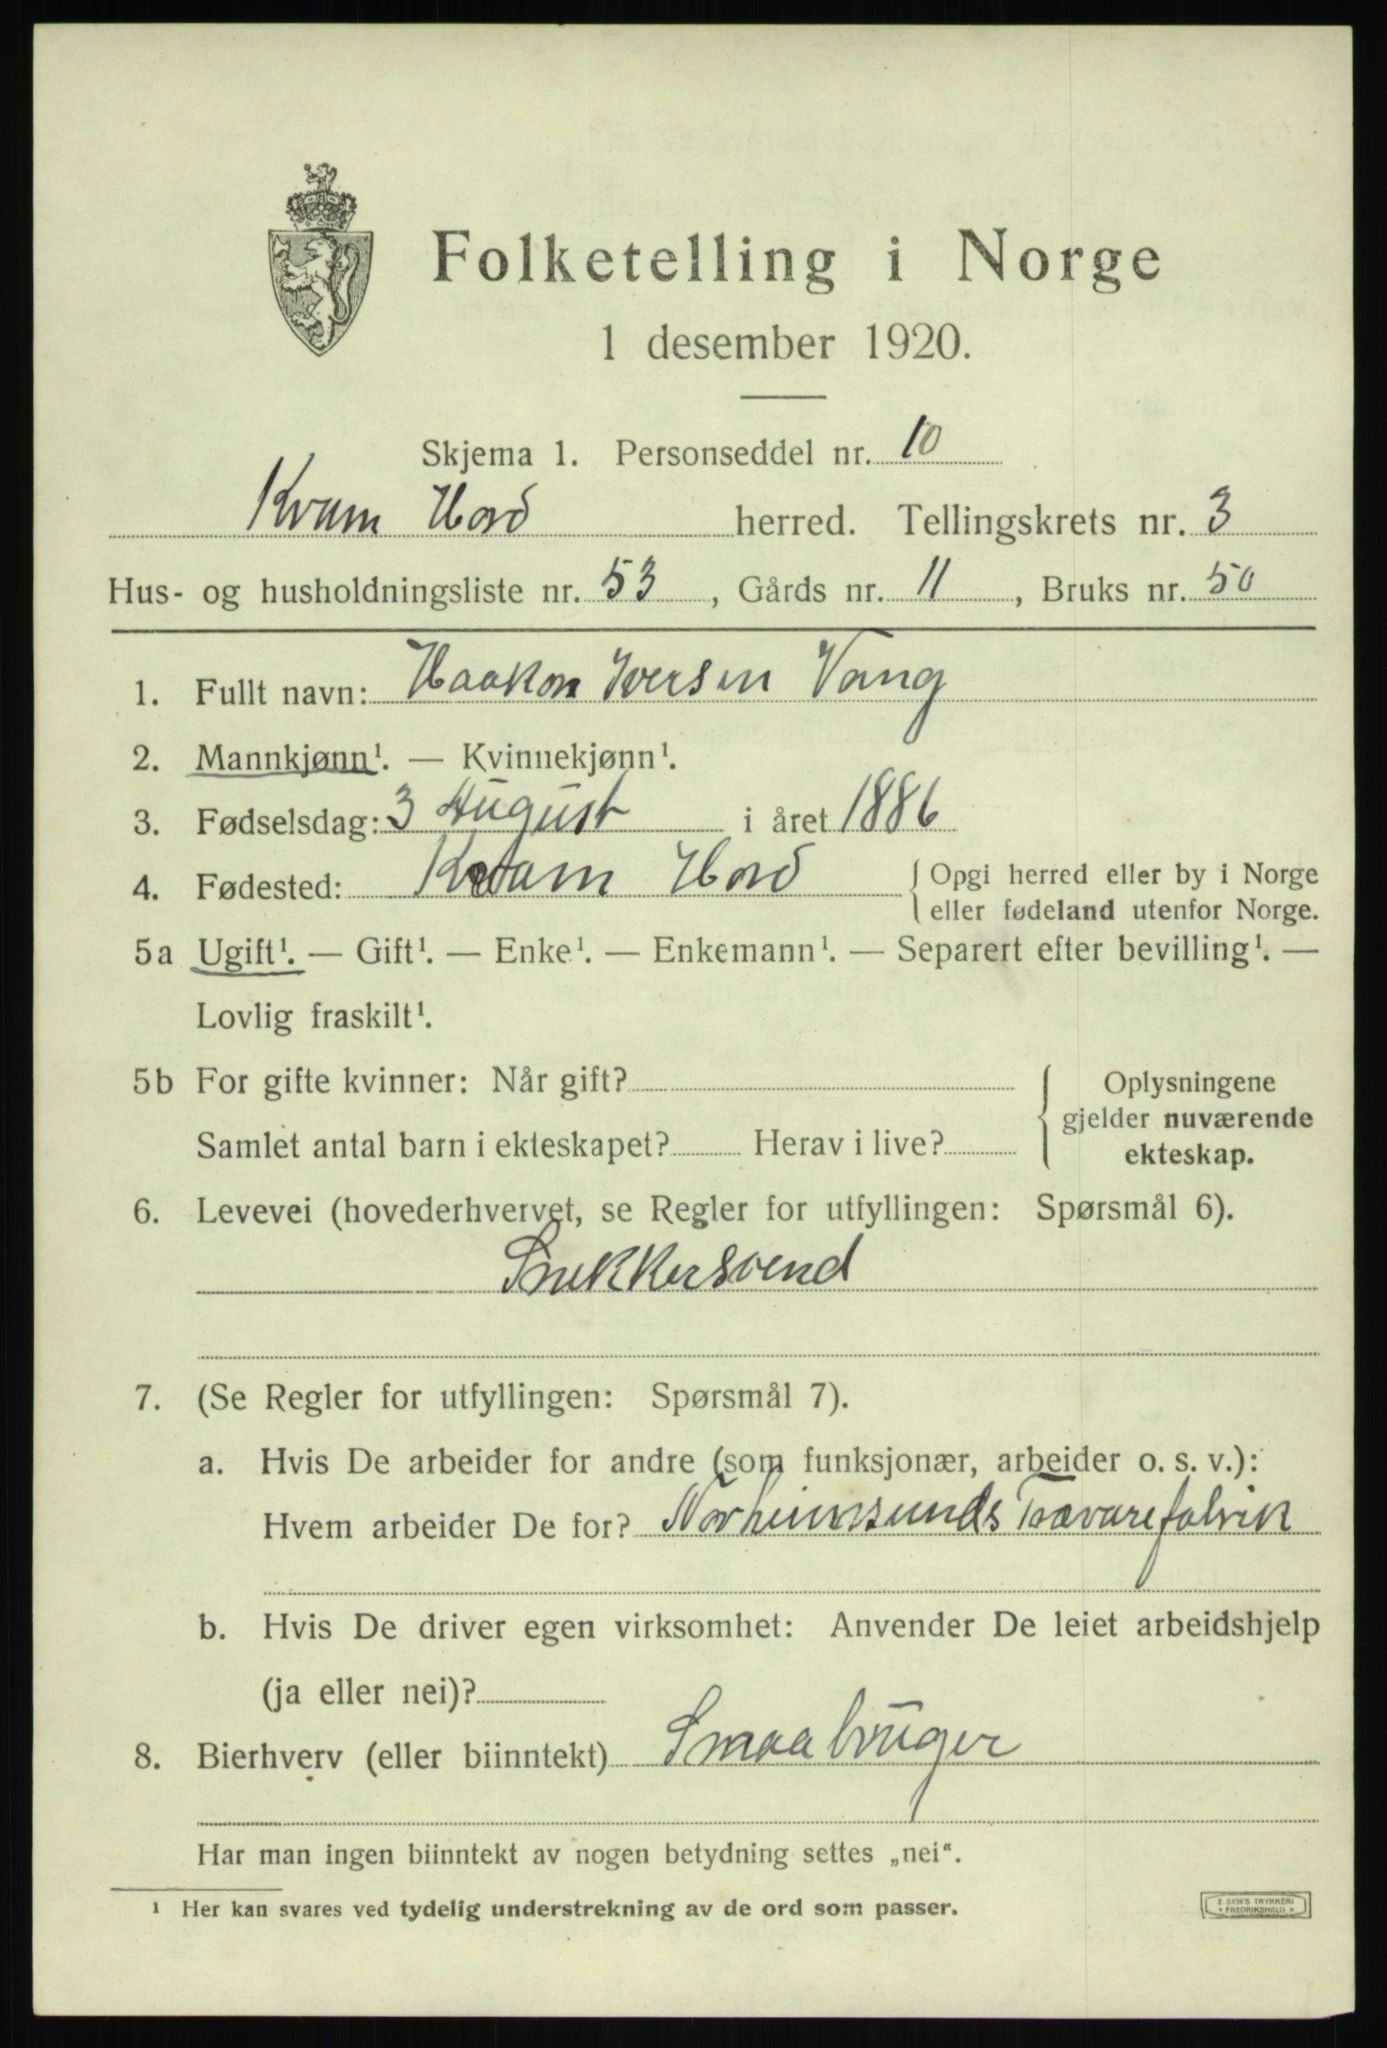 Folketelling i Norge
1 desember 1920.
Skjema 1. Personseddel nr. 10
Kvam Hord herred. Tellingskrets nr. 3
Hus- og husholdningsliste nr. 53, Gårds nr. 11, Bruks nr. 50
1. Fullt navn: Haakon Iversen Vang
2. Mannkjønn¹. — Kvinnekjønn¹.
3. Fødselsdag: 3 August i året 1886
4. Fødested: Kvam Hord { Opgi herred eller by i Norge
eller fødeland utenfor Norge.
5a Ugift¹. — Gift¹. — Enke¹. — Enkemann¹. — Separert efter bevilling¹. —
Lovlig fraskilt¹.
5b For gifte kvinner: Når gift?
Samlet antal barn i ekteskapet? Herav i live?
{ Oplysningene
gjelder nuværende
ekteskap.
6. Levevei (hovederhvervet, se Regler for utfyllingen: Spørsmål 6).
Snekkersvend
7. (Se Regler for utfyllingen: Spørsmål 7).
a. Hvis De arbeider for andre (som funksjonær, arbeider o. s. v.):
Hvem arbeider De for? Norheimsunds Trævarefabrik
b. Hvis De driver egen virksomhet: Anvender De leiet arbeidshjelp
(ja eller nei)?
8. Bierhverv (eller biinntekt) Smaabruger
Har man ingen biinntekt av nogen betydning settes „nei“.
¹ Her kan svares ved tydelig understrekning av de ord som passer.
E. SEM'S TRYKKERI
* FREDRIKSHALD *